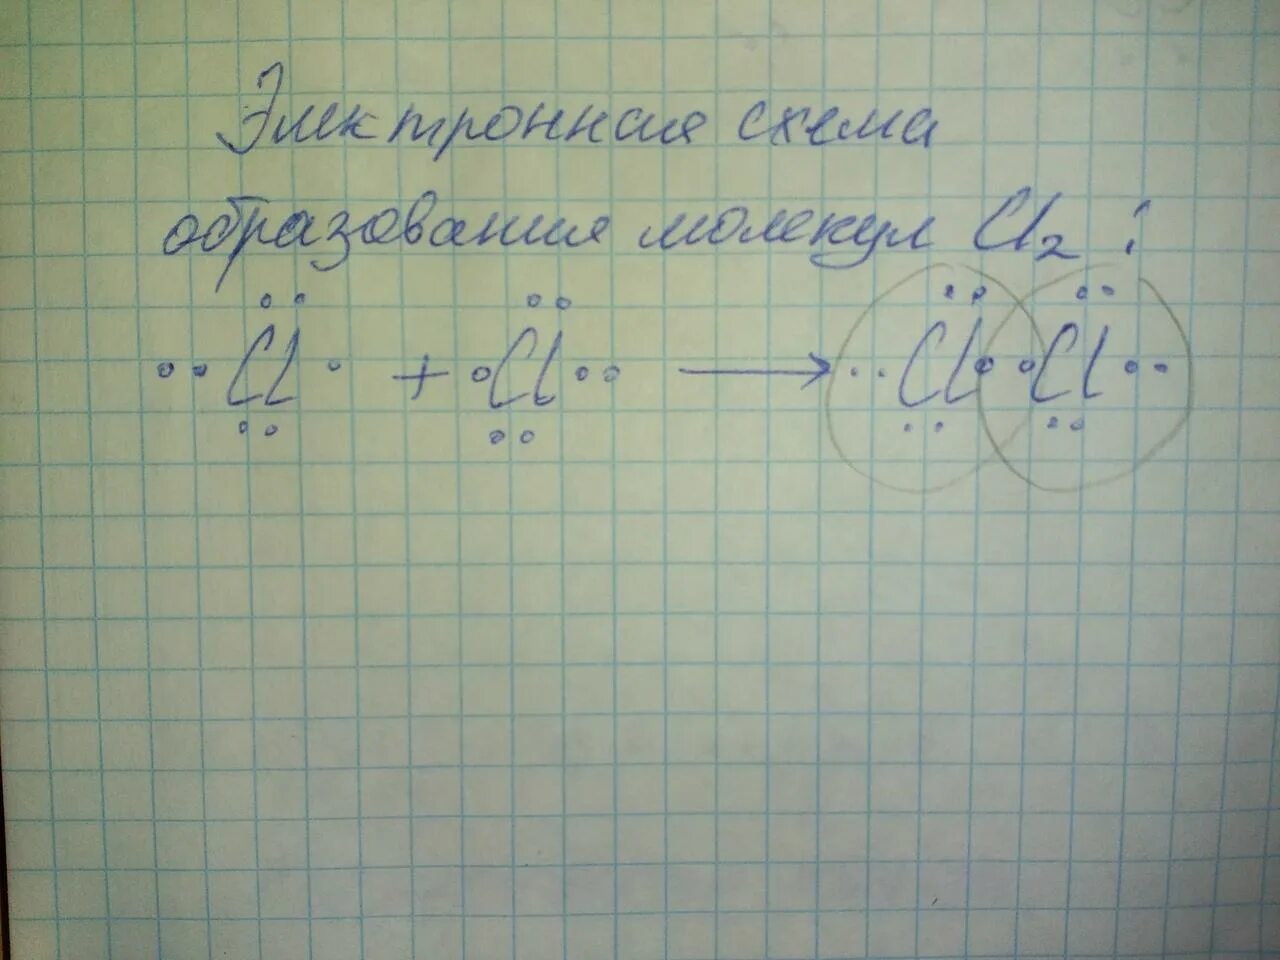 Электронная схема
образования молекул Cl₂ :
Cl + Cl → Cl Cl